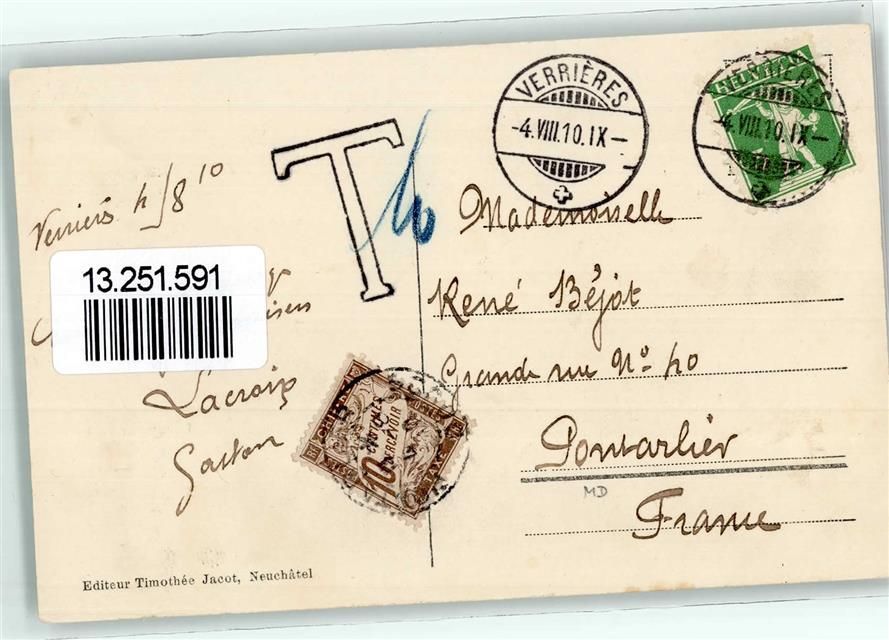 VERRIÈRES
-4.VIII.10.IX-
HELVETIA
VERRIÈRES
-4.VIII.10.IX-
T
10
Verrières 4/8 10
13.251.591
Lacroix
Gaston
Mademoiselle
René Béjot
Grande rue No 40
Pontarlier
MD
France
CHIFFRE
TAXE
POSTES
10
CENTIMES
À PERCEVOIR
Editeur Timothée Jacot, Neuchâtel